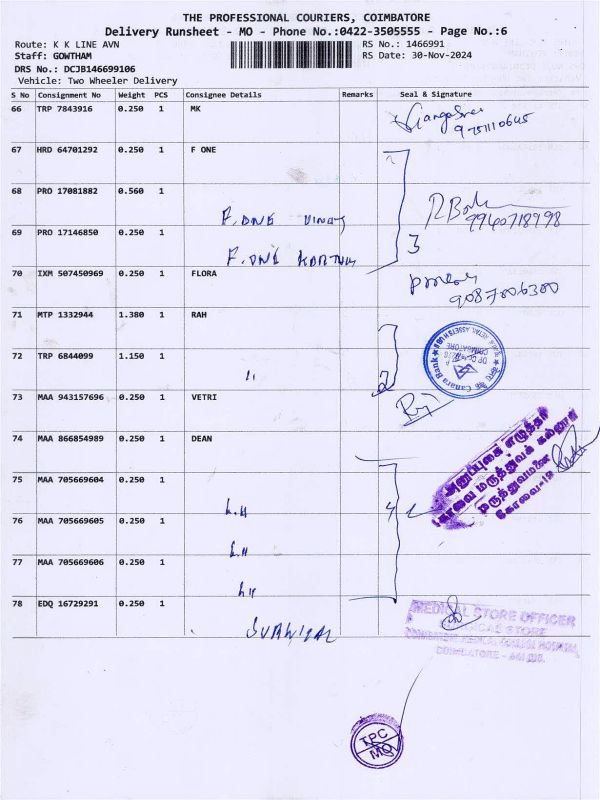 THE PROFESSIONAL COURIERS, COIMBATORE
Delivery Runsheet - MO - Phone No.:0422-3505555 - Page No.:6
Route: K K LINE AVN
RS No.: 1466991
Staff: GOWTHAM
RS Date: 30-Nov-2024
DRS No.: DCJB146699106
Vehicle: Two Wheeler Delivery
S No Consignment No Weight PCS Consignee Details Remarks Seal & Signature
66 TRP 7843916 0.250 1 MK
9751110645
67 HRD 64701292 0.250 1 F ONE
68 PRO 17081882 0.560 1
F. ONE
9940718998
69 PRO 17146850 0.250 1
F. ONE
3
70 IXM 507450969 0.250 1 FLORA
9087806300
71 MTP 1332944 1.380 1 RAH
72 TRP 6844099 1.150 1
"
2
Canara Bank
COIMBATORE
73 MAA 943157696 0.250 1 VETRI
74 MAA 866854989 0.250 1 DEAN
அனுப்புகை எழுத்தர்
கோவை மருத்துவக் கல்லூரி
மருத்துவமனை
கோவை-18
75 MAA 705669604 0.250 1
4
76 MAA 705669605 0.250 1
77 MAA 705669606 0.250 1
78 EDQ 16729291 0.250 1
MEDICAL STORE OFFICER
MEDICAL STORE
COIMBATORE MEDICAL COLLEGE HOSPITAL
COIMBATORE - 641 018.
TPC
MO